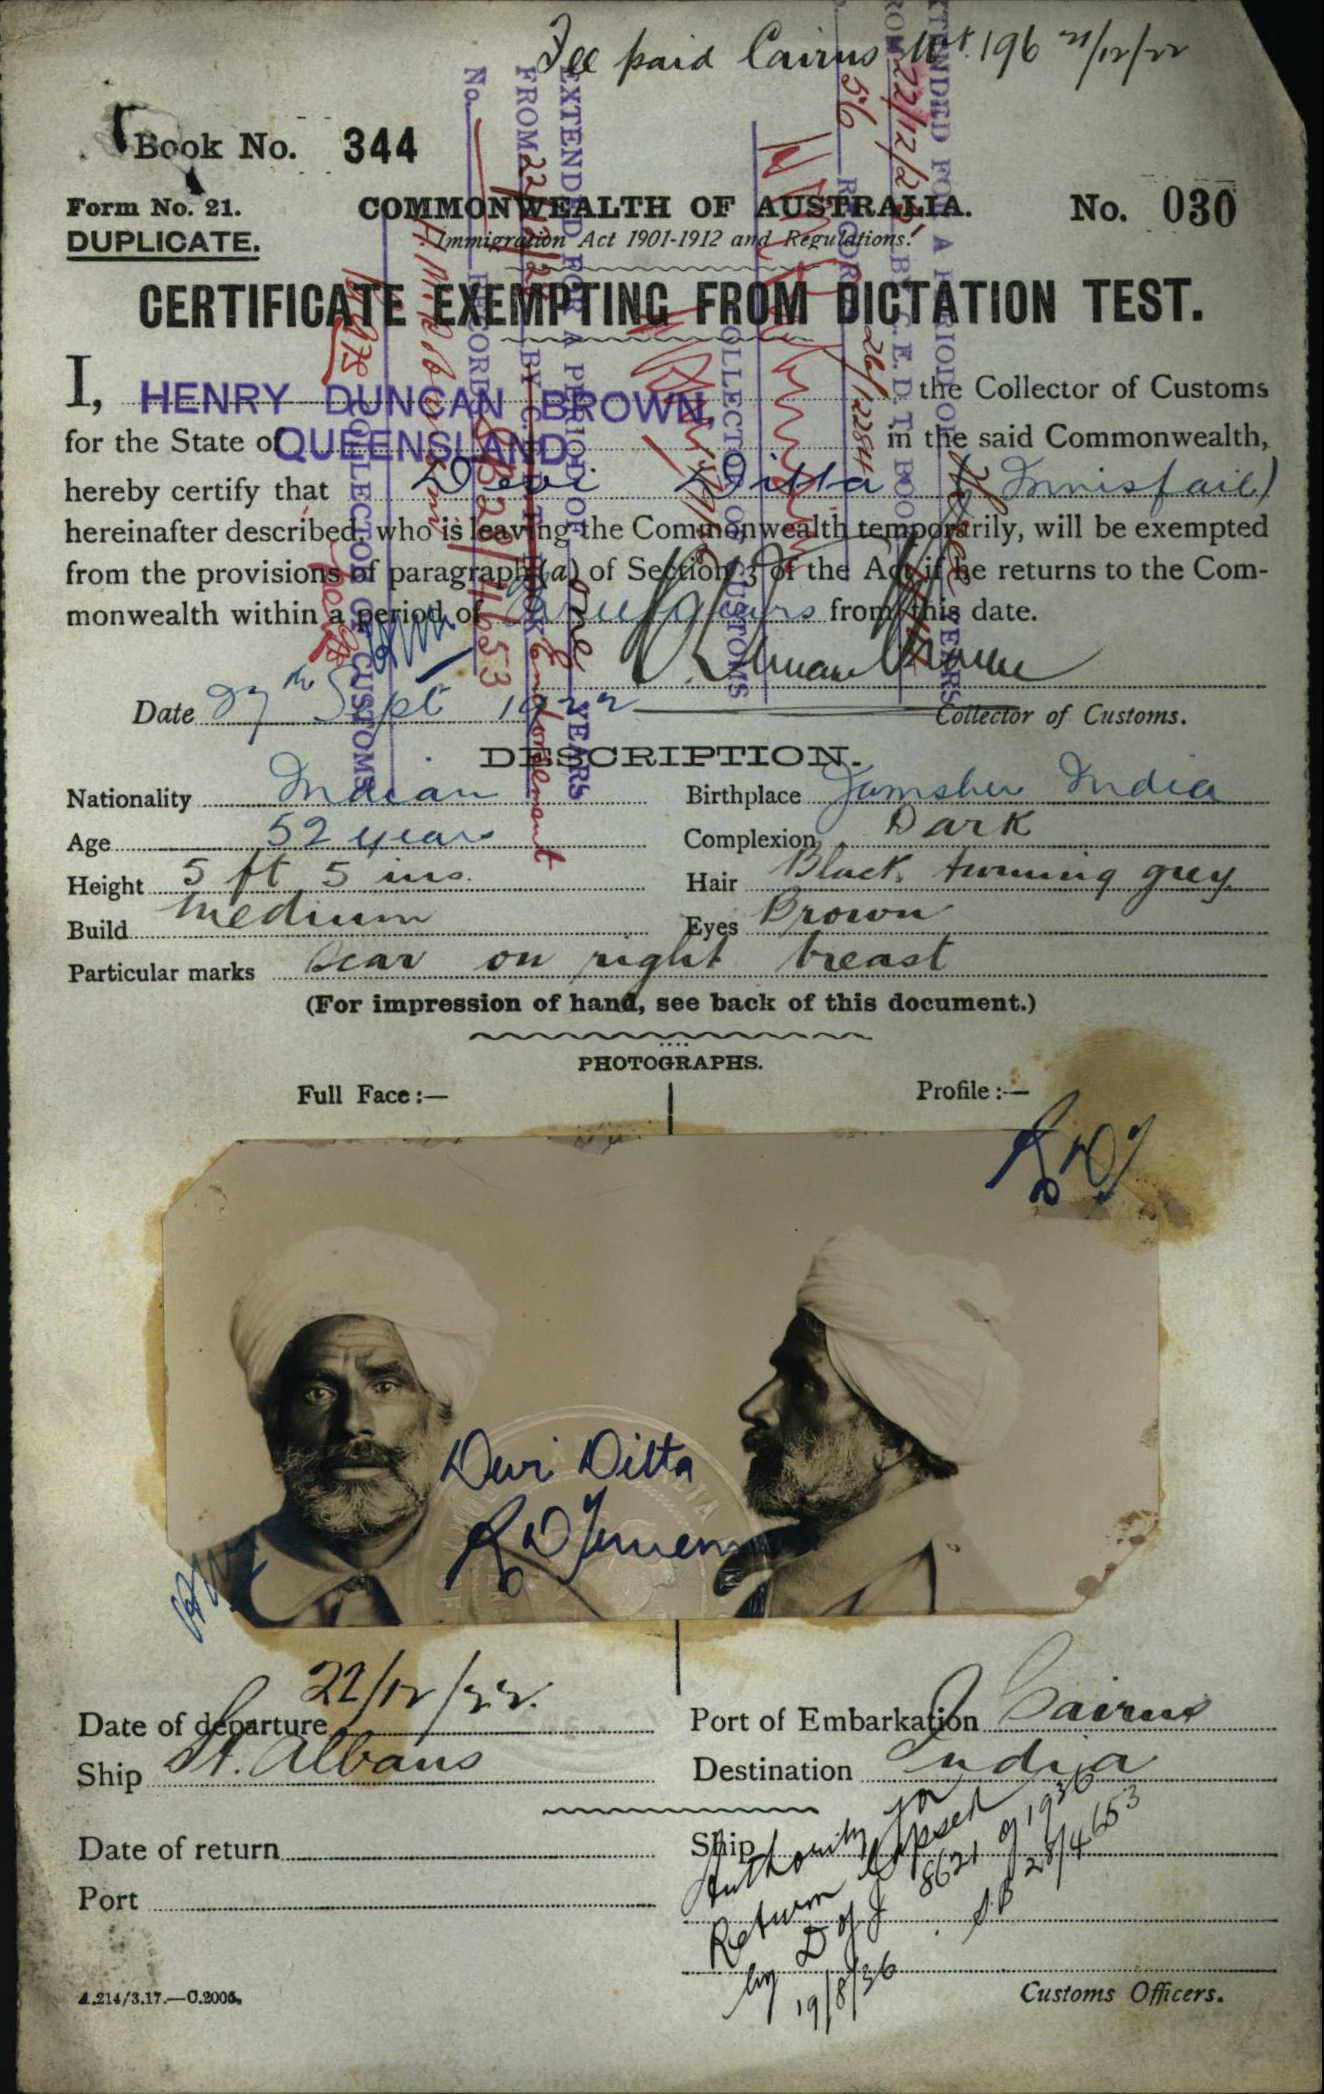 Fee paid Cairns 196 21/12/22
Book No. 344
Form No. 21.
COMMONWEALTH OF AUSTRALIA.
No. 030
DUPLICATE.
Immigration Act 1901-1912 and Regulations.
CERTIFICATE EXEMPTING FROM DICTATION TEST.
I, HENRY DUNCAN BROWN, the Collector of Customs
for the State of QUEENSLAND in the said Commonwealth,
hereby certify that Devi Ditta (Innisfail)
hereinafter described, who is leaving the Commonwealth temporarily, will be exempted
from the provisions of paragraph (a) of Section 3 of the Act if he returns to the Com-
monwealth within a period of years from this date.
Date 27th Sept 1922
Collector of Customs.
EXTENDED FOR A PERIOD OF YEARS
FROM 22/12/2 BY C.E.D.T. BOOK
No. 56 RECORD 26/12284
COLLECTOR OF CUSTOMS
EXTENDED FOR A PERIOD OF one YEARS
FROM 22/12/28 BY C.E.D.T. BOOK Endorsement
No. RECORD SB 28/4653
COLLECTOR OF CUSTOMS
DESCRIPTION.
Nationality Indian
Birthplace Jamsher India
Age 52 years
Complexion Dark
Height 5 ft 5 ins.
Hair Black, turning grey
Build Medium
Eyes Brown
Particular marks Scar on right breast
(For impression of hand, see back of this document.)
PHOTOGRAPHS.
Full Face:—
Profile:—
Devi Ditta
Date of departure 22/12/22.
Port of Embarkation Cairns
Ship St. Albans
Destination India
Date of return
Ship
Port
Authority for
Return lapsed
by D of I 8621 of 1936
19/8/36 . S.B 28/4653
A.214/3.17.—C.2005.
Customs Officers.